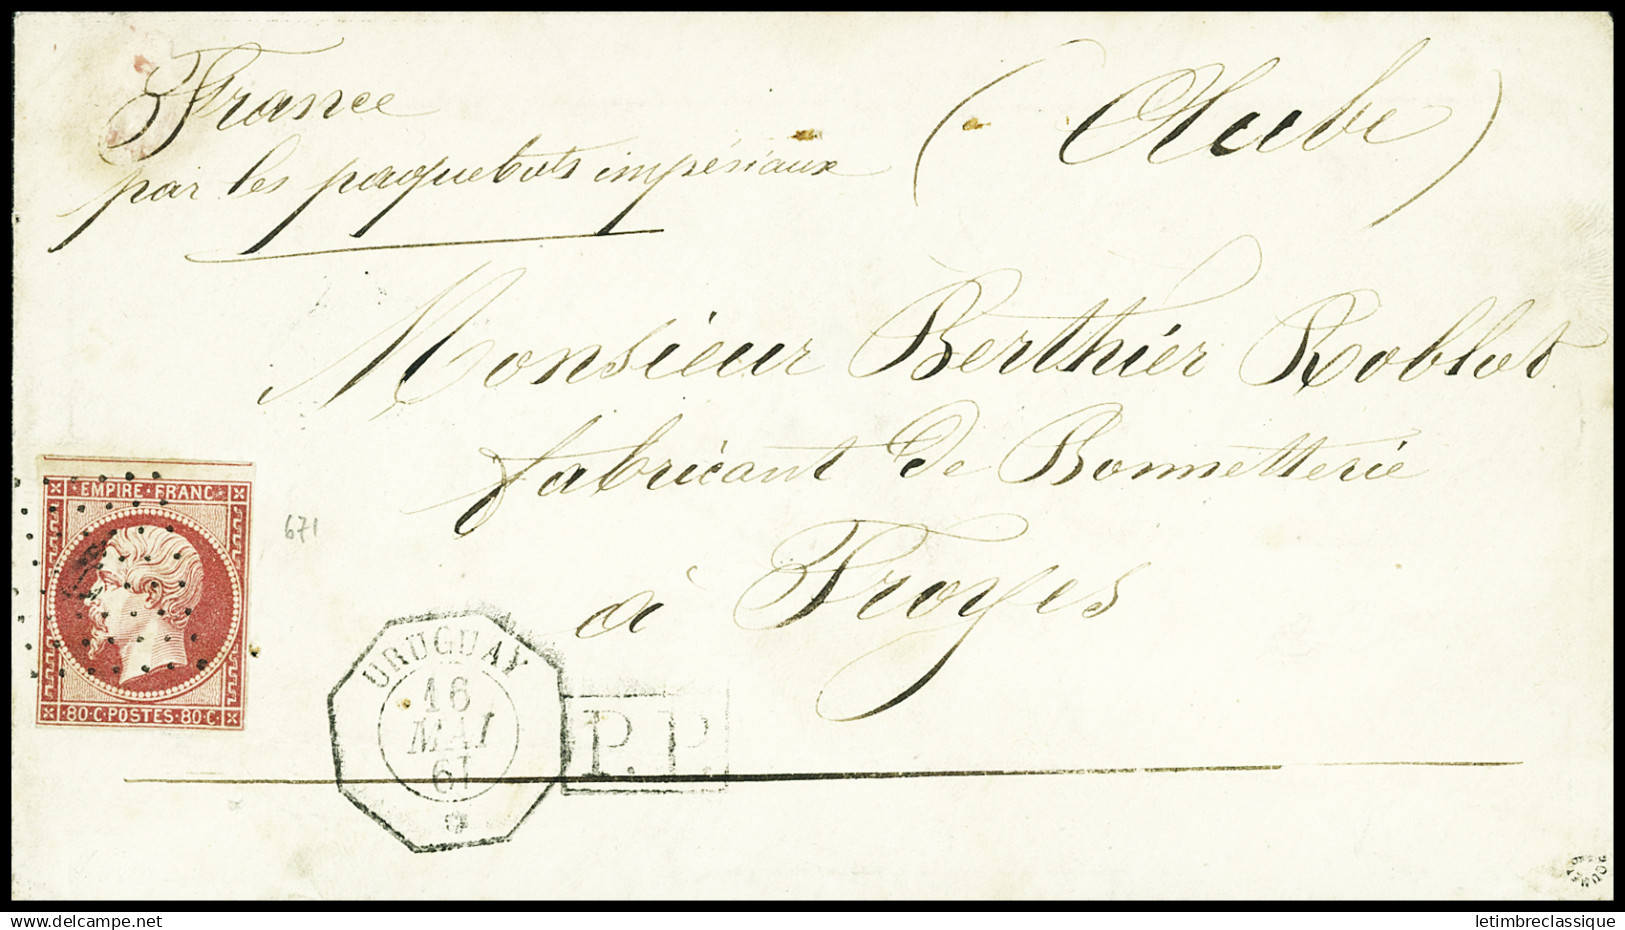 France
par les paquebots impériaux
( Aube )
Monsieur Berthier Roblot
fabricant de Bonnetterie
à Troyes
EMPIRE · FRANC
80·C·POSTES·80·C
671
URUGUAY
16
MAI
61
P.P.
delcampe.net
letimbreclassique